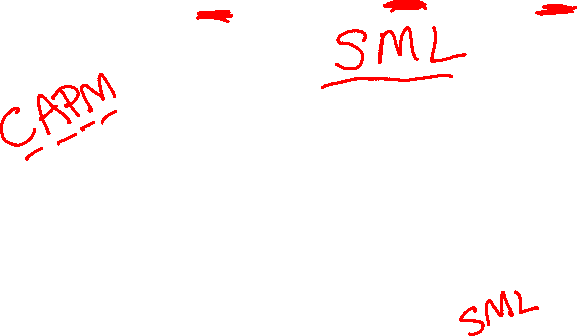 SML
CAPM
SML